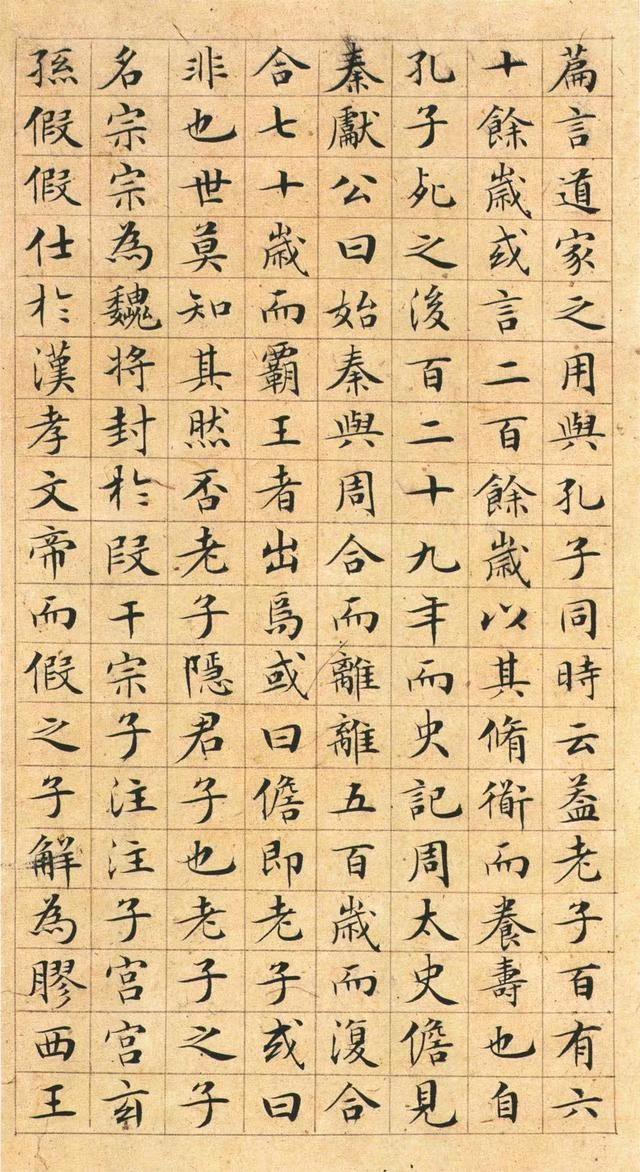 篇言道家之用與孔子同時云葢老子百有六
十餘歲或言二百餘歲以其脩術而養壽也自
孔子死之後百二十九年而史記周太史儋見
秦獻公曰始秦與周合而離離五百歲而復合
合七十歲而霸王者出焉或曰儋即老子或曰
非也世莫知其然否老子隱君子也老子之子
名宗宗為魏將封於段干宗子注注子宮宮玄
孫假假仕於漢孝文帝而假之子解為膠西王